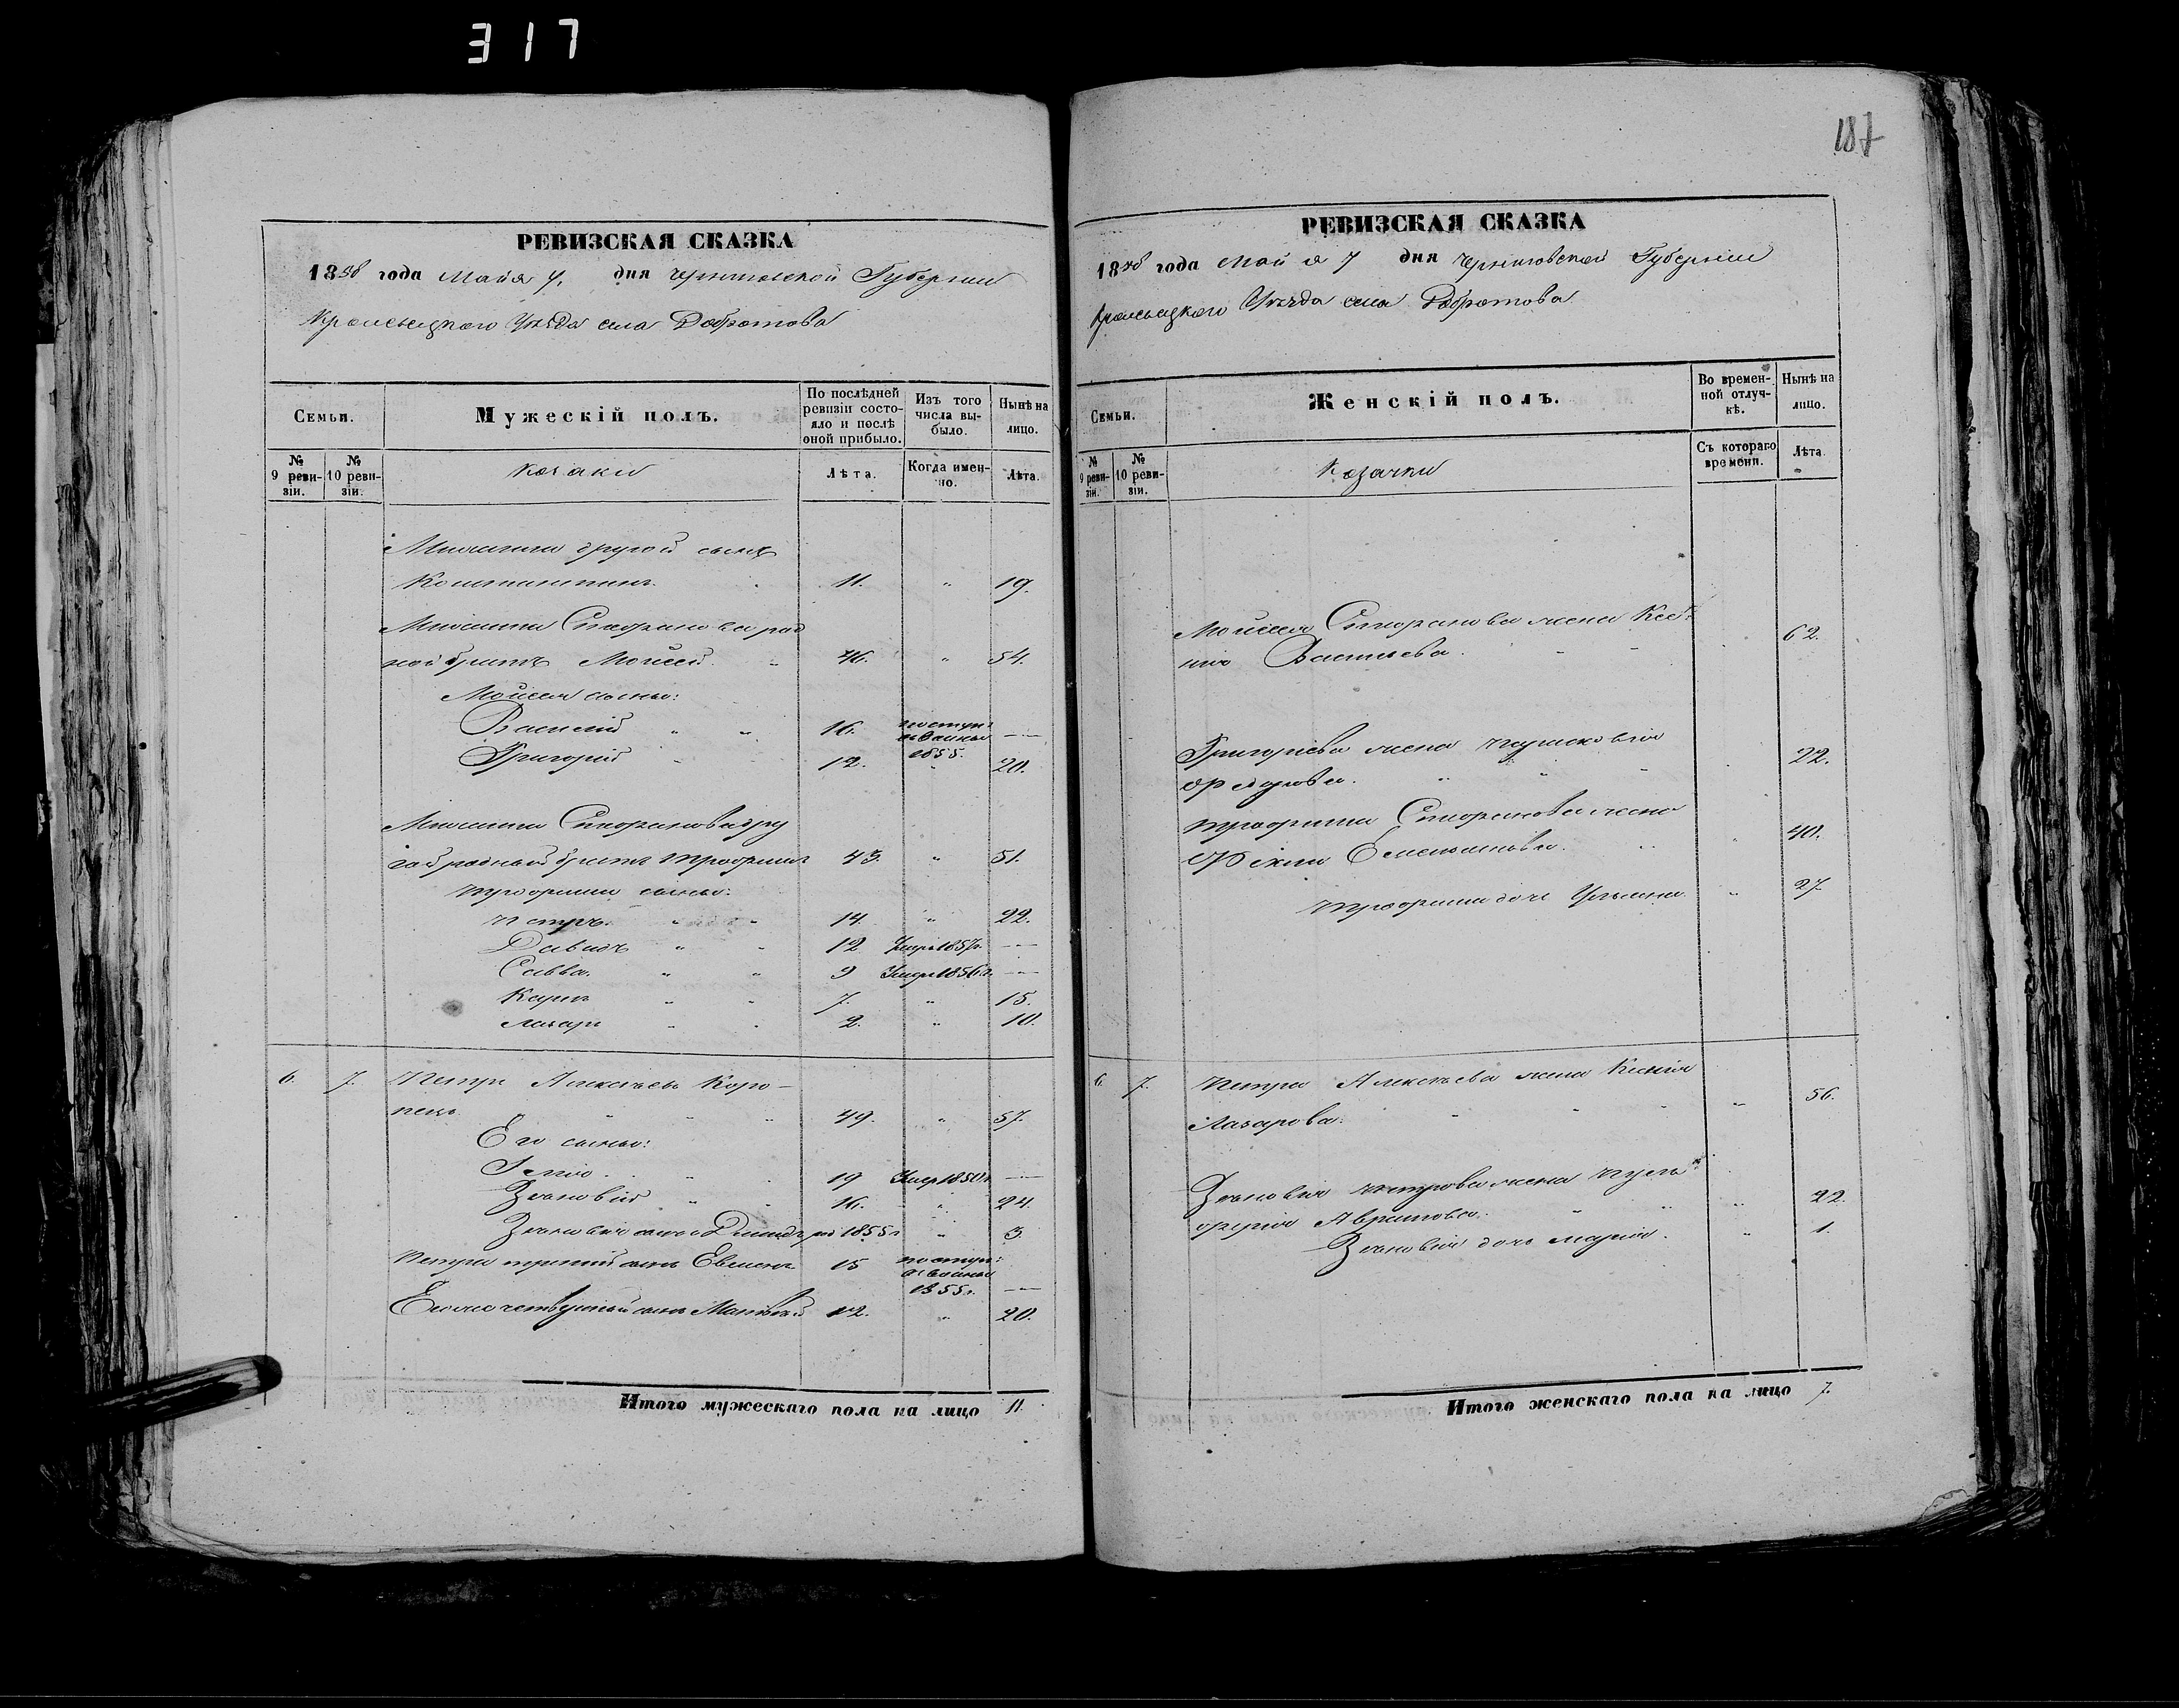 317
187
РЕВИЗСКАЯ СКАЗКА
1858 года Майя 7, дня Черниговской Губернии
Кролевецкаго Уѣзда села Добротова
Семьи.
Мужескій полъ.
По послѣдней ревизіи состояло и послѣ оной прибыло.
Изъ того числа выбыло.
Нынѣ на лицо.
№ 9 ревизіи.
№ 10 ревизіи.
Козаки
Лѣта.
Когда именно.
Лѣта.
другой сынъ
Константинъ 11. " 19.
Стефанова род
ной братъ Моисей 46. " 54.
Моисея сыны:
Василий 16. поступ: 1855. —
Григорий 12. " 20.
Стефанова дру
гой родный братъ Трофимъ 43. " 51.
Трофима сыны:
Петръ. " " 14. " 22.
Давидъ " " 12 Умеръ 1857г. —
Савва. " " 9 Умер 1856г. —
Карпъ " " 7. " 15.
Лазарь " " 2. " 10.
6. 7. Петръ Алексѣевъ Коро-
пецъ 49. " 57.
Его сыны:
19 Умер 1850г. —
Зѣновий " " 16. " 24.
Зѣновия сынъ род 1855г " 3.
Петра третий сынъ Евменъ 15 поступ: 1855г. —
четвертый сынъ Матвѣй 12. " 20.
Итого мужескаго пола на лицо 11.
РЕВИЗСКАЯ СКАЗКА
1858 года Майя 7 дня Черниговской Губернии
Кролевецкаго Уѣзда села Добротова
Семьи.
Женскій полъ.
Во временной отлучкѣ.
Нынѣ на лицо.
№ 9 ревизіи.
№ 10 ревизіи.
Козачки
Съ котораго времени.
Лѣта.
Моисея Стефанова жена Ксе:
ния Васильева. 62.
Григориева жена Парасковия
Федорова. 22.
Трофима Стефанова жена
Фекла Емельянова. " 40.
Трофима дочь Ульяна " 27
6. 7. Петра Алексѣева жена Ксения
Лазарова. " 56.
Зѣновия Петрова жена Пуль:
херия " 22.
Зѣновия дочь Мария. " 1.
Итого женскаго пола на лицо 7.